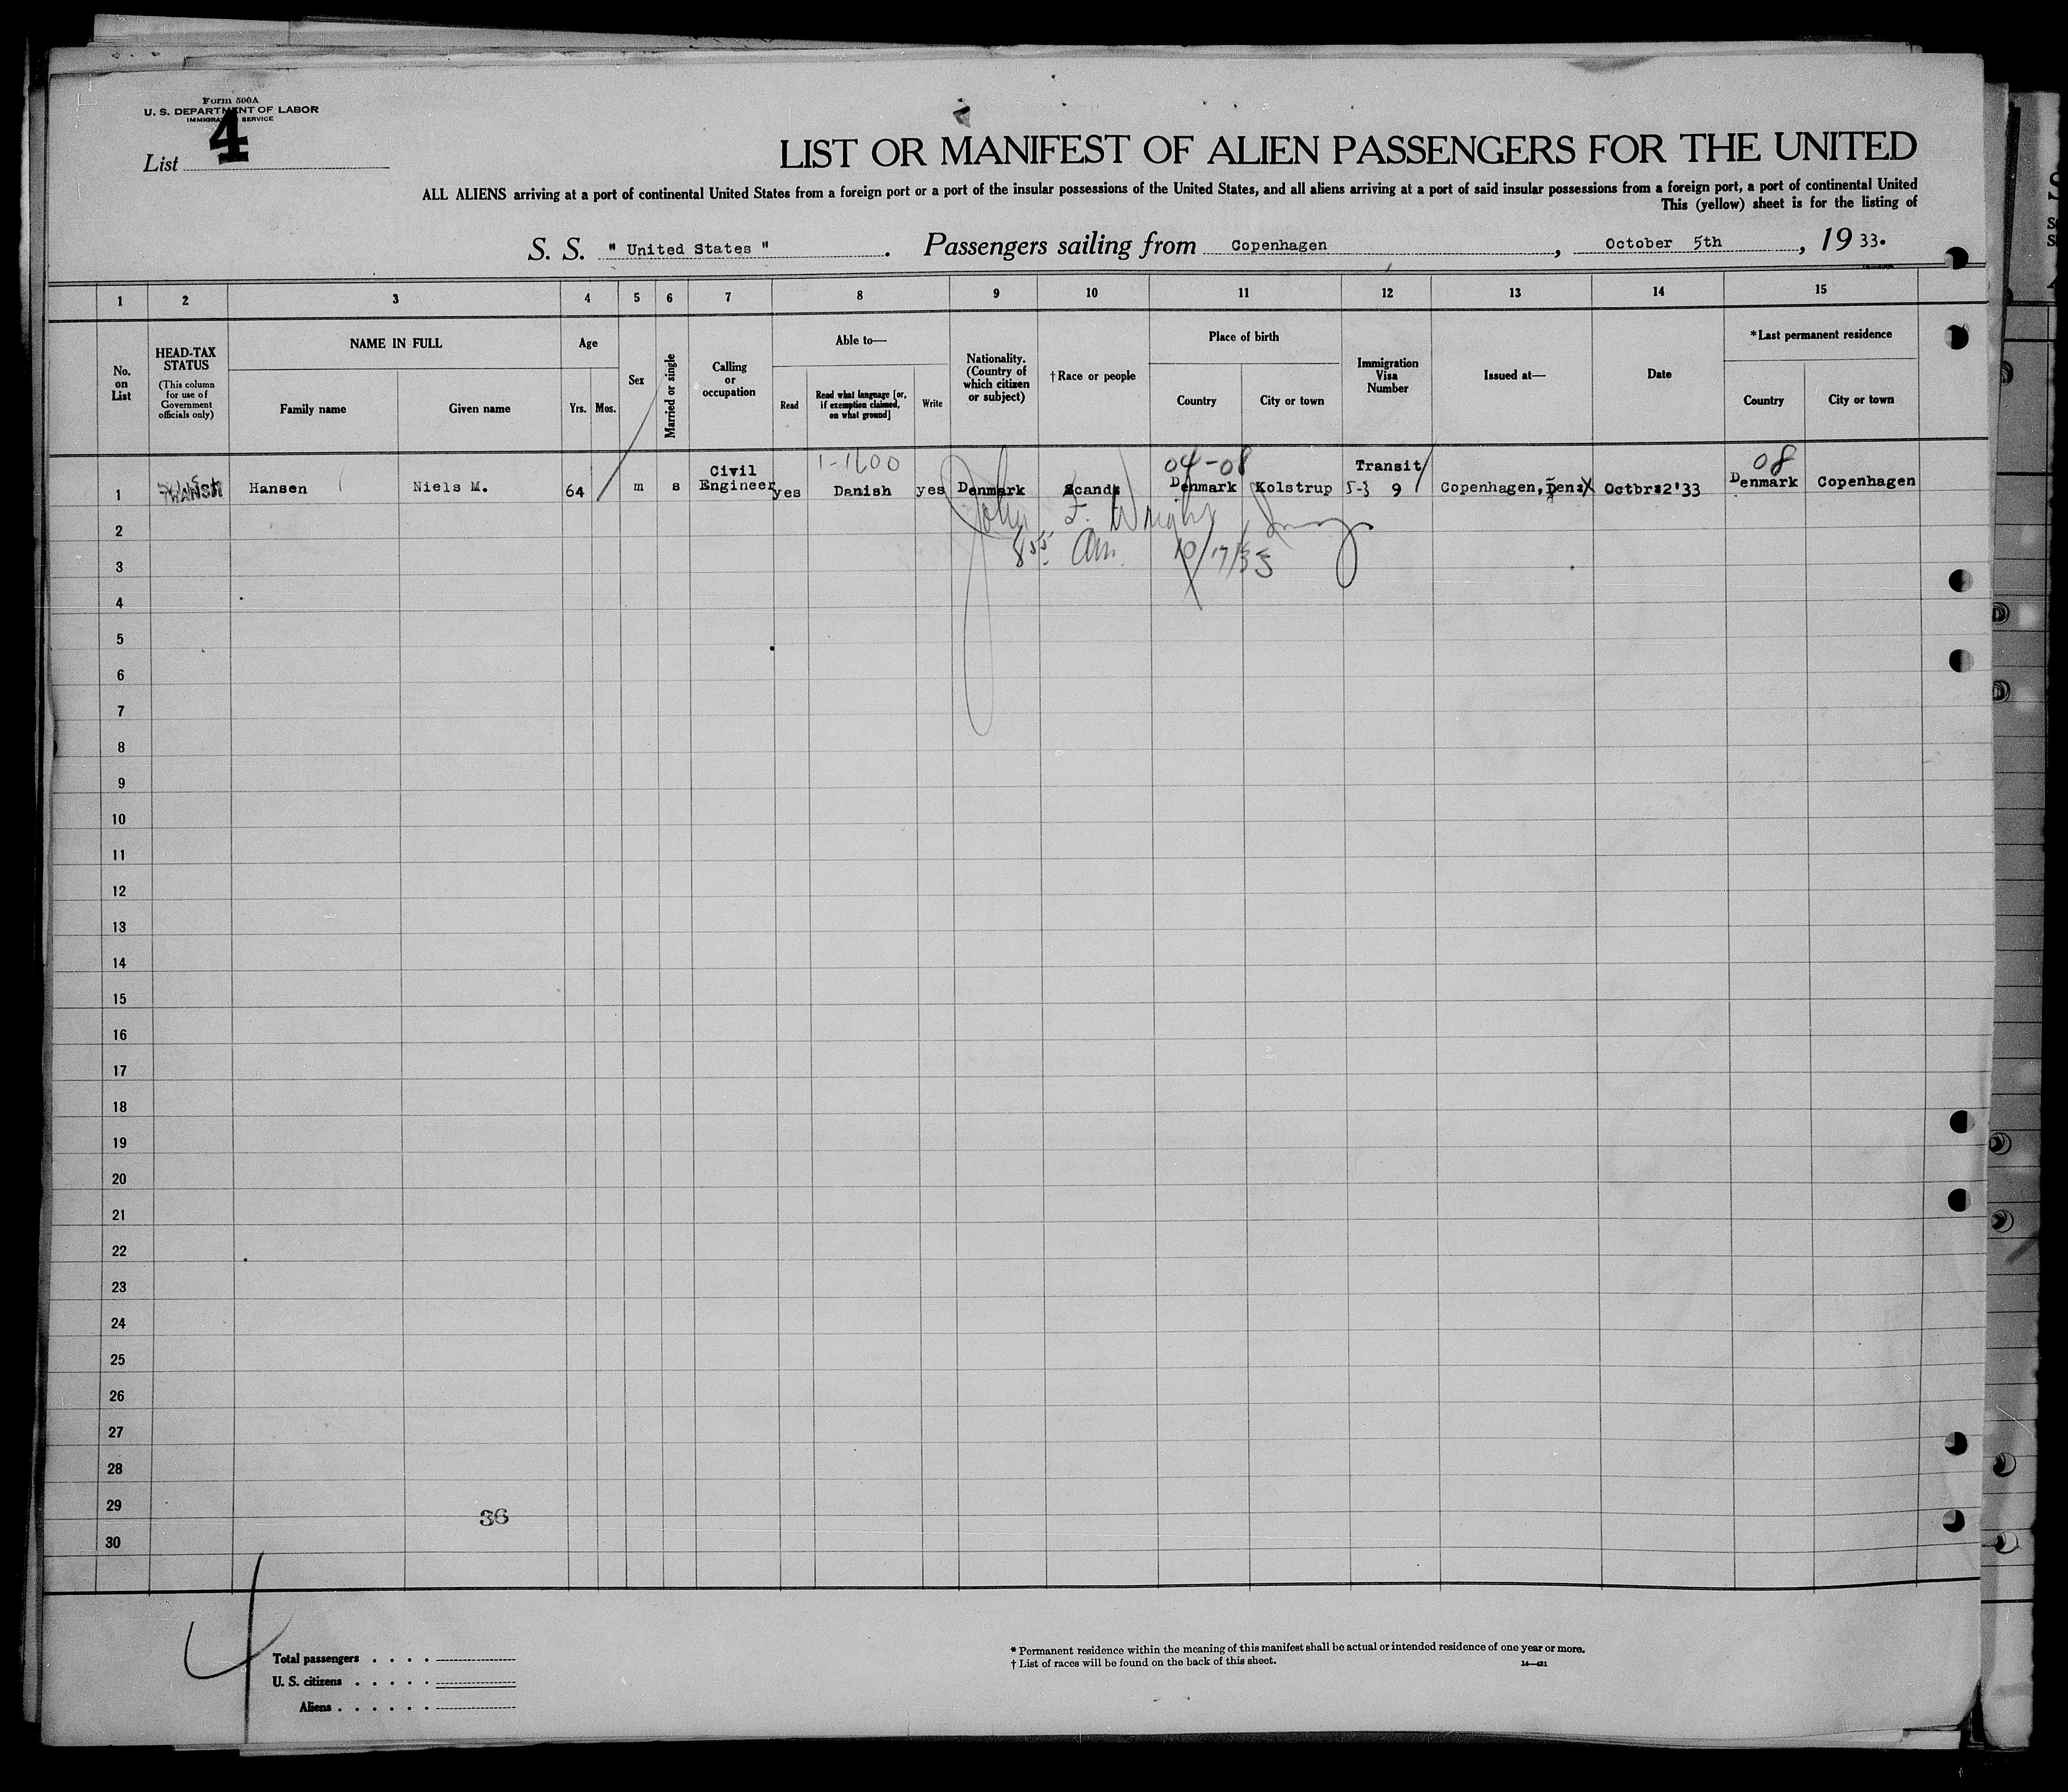 Form 500A
U. S. DEPARTMENT OF LABOR
IMMIGRATION SERVICE
List 4
LIST OR MANIFEST OF ALIEN PASSENGERS FOR THE UNITED
ALL ALIENS arriving at a port of continental United States from a foreign port or a port of the insular possessions of the United States, and all aliens arriving at a port of said insular possessions from a foreign port, a port of continental United
This (yellow) sheet is for the listing of
S. S. " United States ". Passengers sailing from Copenhagen, October 5th, 19 33.
1 2 3 4 5 6 7 8 9 10 11 12 13 14 15
No. on List
HEAD-TAX STATUS
(This column for use of Government officials only)
NAME IN FULL
Family name Given name
Age
Yrs. Mos.
Sex
Married or single
Calling or occupation
Able to—
Read
Read what language [or, if exemption claimed, on what ground]
Write
Nationality. (Country of which citizen or subject)
†Race or people
Place of birth
Country City or town
Immigration Visa Number
Issued at—
Date
*Last permanent residence
Country City or town
04-08 08
1 TRANSIT Hansen Niels M. 64 m s Civil Engineer yes Danish yes Denmark Scand. Denmark Kolstrup Transit 5-3 9 Copenhagen, Den: Octbr:2'33 Denmark Copenhagen
2 John F. Wright
3 8 55 am. 10/17/33
4
5
6
7
8
9
10
11
12
13
14
15
16
17
18
19
20
21
22
23
24
25
26
27
28
29 36
30
Total passengers . . . .
U. S. citizens . . . . .
Aliens . . . . . .
* Permanent residence within the meaning of this manifest shall be actual or intended residence of one year or more.
† List of races will be found on the back of this sheet.